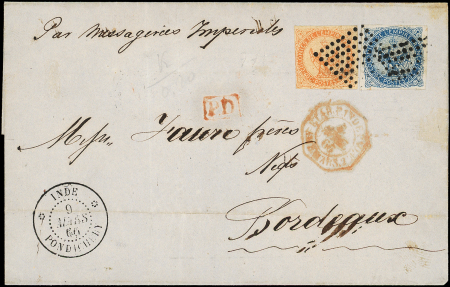 Par Messageries Imperiales
PD
Messrs Faure frères
Negts
Bordeaux
INDE
9
MARS
66
PONDICHERY